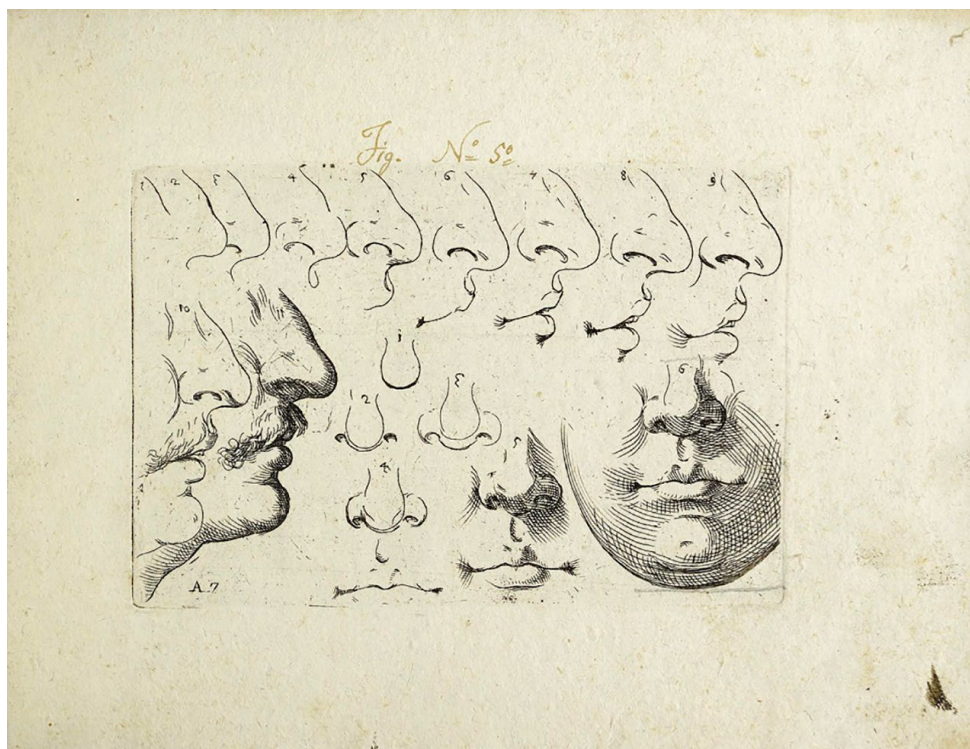 Fig. Nº 5º
1 2 3 4 5 6 7 8 9
10
1
2 3
4 5 6
A.7